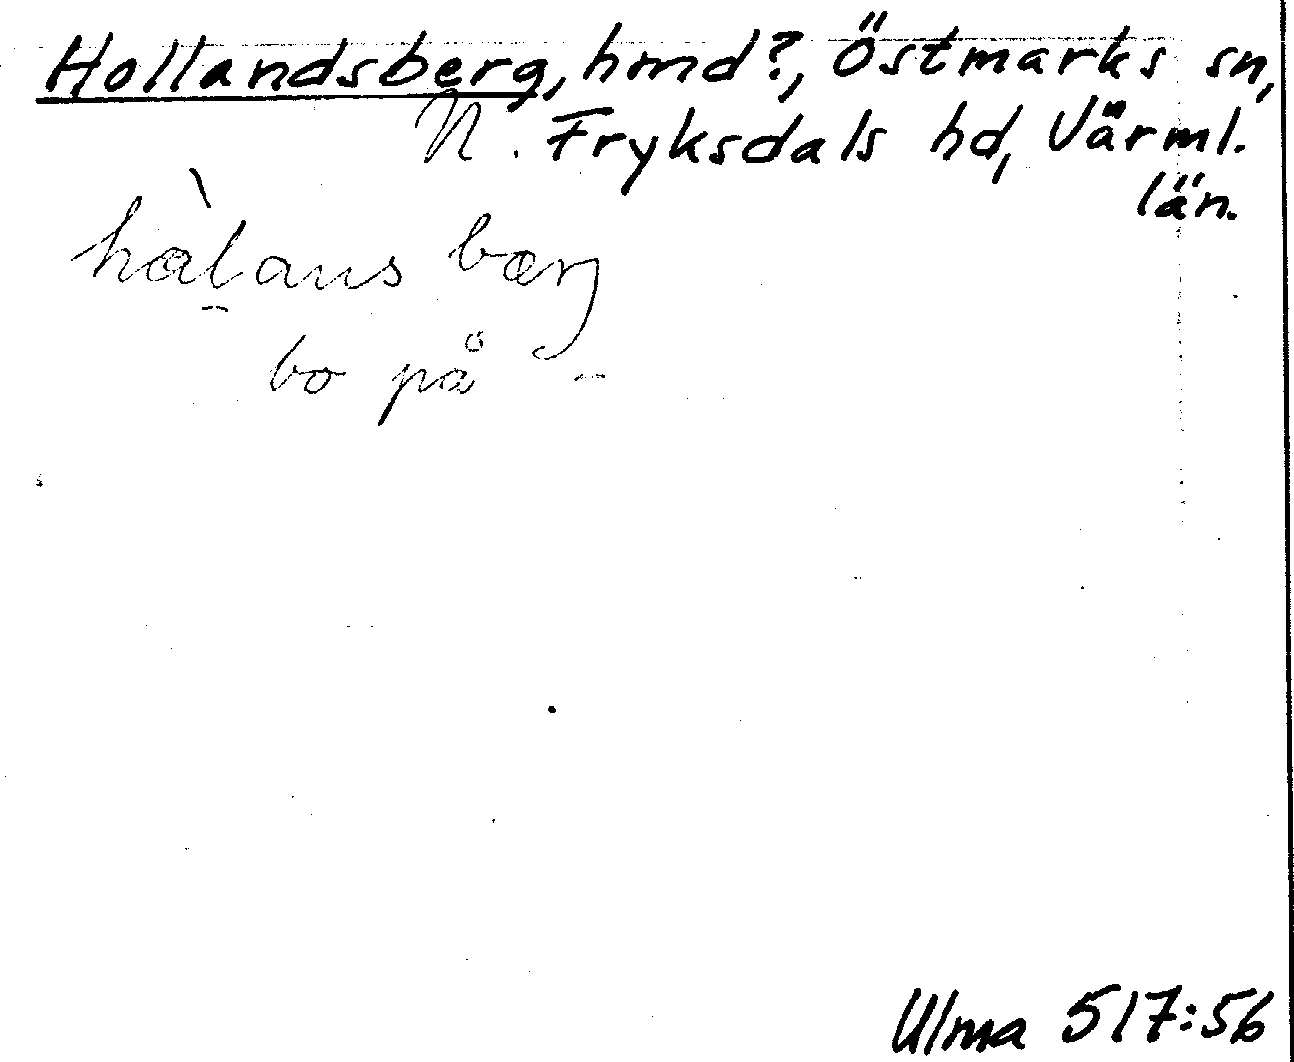 Hollandsberg, hmd?, Östmarks sn,
N. Fryksdals hd, Värml.
län.
hàlans bærj
bo på –
Ulma 517:56